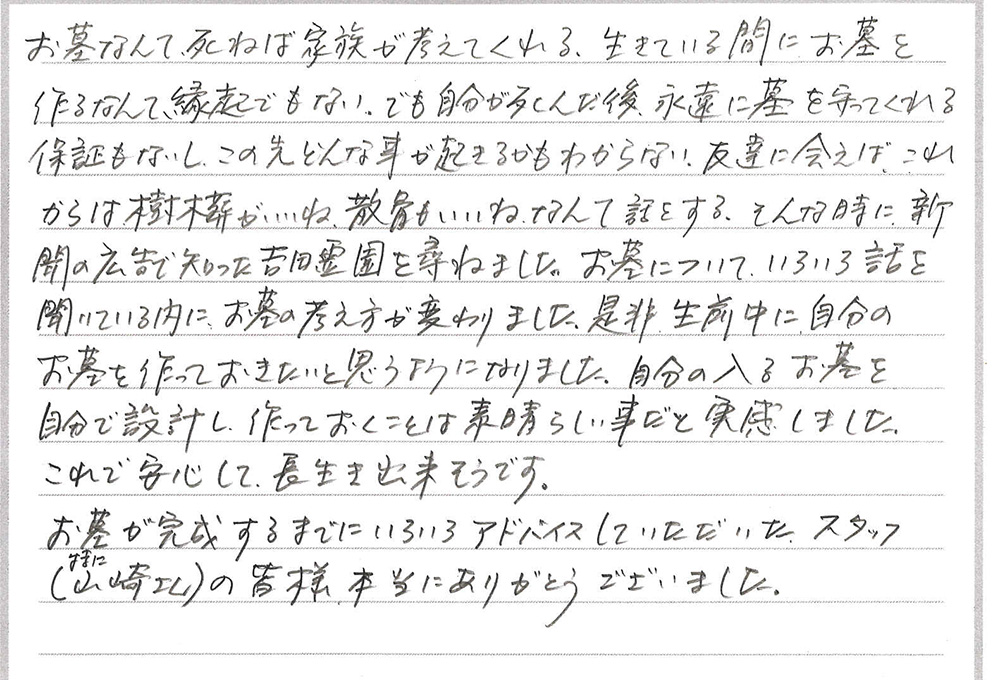 お墓なんて、死ねば家族が考えてくれる、生きている間にお墓を
作るなんて、縁起でもない、でも自分が死んだ後、永遠に墓を守ってくれる
保証もないし、この先どんな事が起きるかもわからない、友達に会えば、これ
からは樹木葬がいいね、散骨もいいね、なんて話をする、そんな時に、新
聞の広告で知った吉田霊園を尋ねました。お墓について、いろいろ話を
聞いている内に、お墓の考え方が変わりました、是非、生前中に、自分の
お墓を作っておきたいと思うようになりました、自分の入るお墓を
自分で設計し、作っておくことは素晴らしい事だと実感しました。
これで安心して、長生き出来そうです。
お墓が完成するまでにいろいろアドバイスしていただいた、スタッフ
(山崎さん)の皆様、本当にありがとうございました。